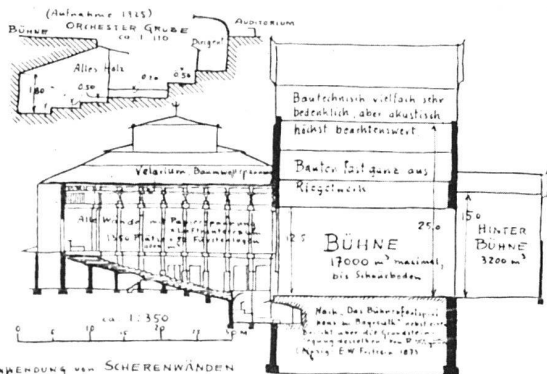 (Aufnahme 1925)
ORCHESTER GRUBE
ca. 1:110
BÜHNE
AUDITORIUM
Dirigent
Alles Holz
1.80
0.30
0.20
0.50
Bautechnisch vielfach sehr
bedenklich, aber akustisch
höchst beachtenswert
Bauten fast ganz aus
Riegelwerk
Velarium, Baumwollspannung
Alle Wände mit Papierspannung
12.5
25.0
BÜHNE
17000 m³ maximal,
bis Schnürboden
15.0
HINTER
BÜHNE
3200 m³
ca. 1:350
0 5 10 15 20 25 30 M
Nach „Das Bühnenfestspiel
haus zu Bayreuth" nebst einem
Bericht über die Grundstein-
legung desselben von R. Wagner
(Leipzig: E.W. Fritzsch 1873
ANWENDUNG von SCHERENWÄNDEN